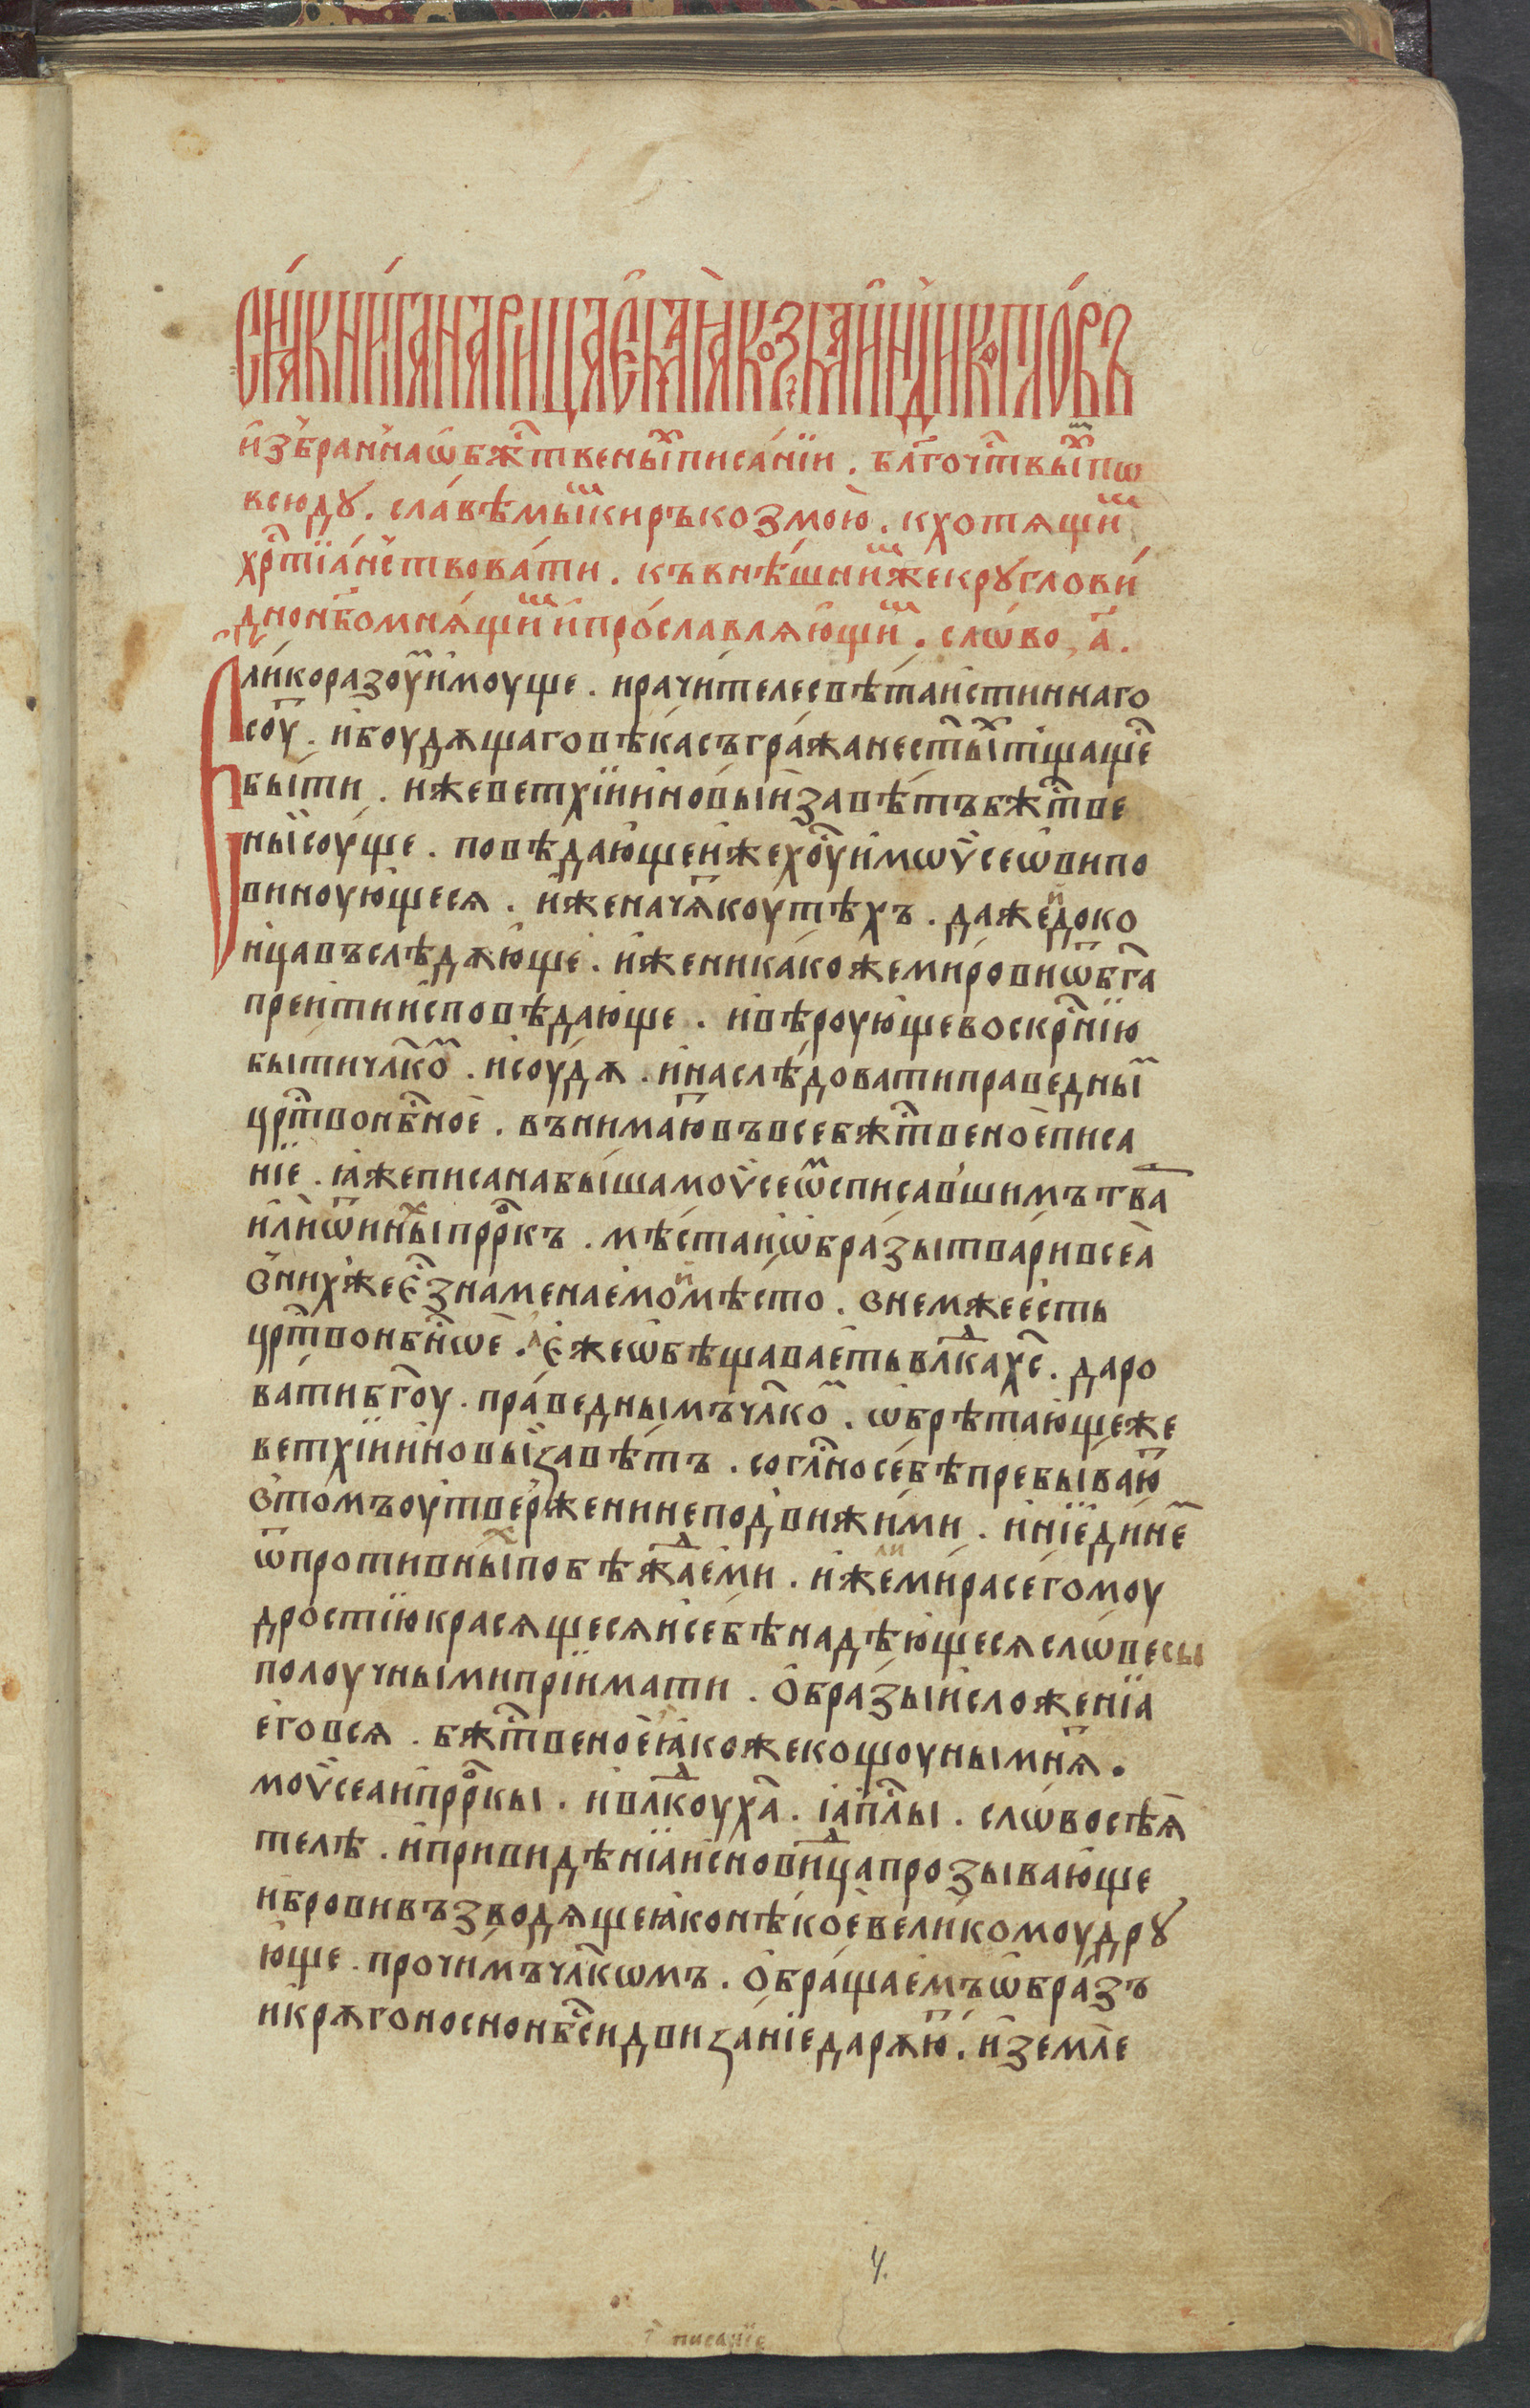 сиа́ кни́га нарица́емаа козма индикопло́въ
и҆збранна ѿ бж҃твены́х писа́нїи . бл҃гочт҃вы́м по
всю́дꙋ . сла́вѣмы́м кирькозмо́ю . к хотѧщи́м
хр҃тїа́ньствова́ти . къ внѣ́шни́м же крꙋглови́
дно нб҃о мнѧ́щи́м и҆ просла́влѧющи́м . сло́во , а҃ .
Ели́ко разоу́м и҆моуще . и рачи́телє свѣ́та и҆стиннаго
соу́т . и҆ боудѧщаго вѣ́ка съгра́жане ст҃ы́м тща́щес
бы́ти . иже ветхїи и но́выи завѣ́тъ бж҃тве
ны́и соу́ще . повѣ́дающе и҆же хс҃оу и҆ мѡѷсеѡви по
виноующеєѧ . и҆же начѧ́ткоу тѣхъ . даже и до ко
нца въслѣ́дѫюще . и҆же никакоже ми́рови ѿ бг҃а
преити исповѣ́дающе . и вѣроующе воскр҃нїю
быти члк҃ом . и соу́дѫ . и҆ наслѣ́довати пра́ведным
цр҃тво нбн҃ое . вънима́ют въ все бж҃твеное писа
нїе . ꙗже писана бы́ша моѷсеѡм списавшимъ тва
и҆ли ѿ и́ных прр҃окъ . мѣста и ѡбра́зы тва́ри всеа̀
в них же ест знаменаемое и мѣ́сто . в нем же є҆сть
цр҃тво нбн҃ѡе . є҆же ѡбѣщаваетъ влдк҃а хс҃ . даро
вати бг҃оу . пра́веднымъ члк҃ом . ѡбрѣтающе же
ветхїи и новыи завѣ́тъ . согл҃но себѣ пребывают
в то́мъ оутве́ржени неподвижи́ми . и҆ нїеди́нем
ѿ проти́вных побѣжда́еми . и҆же ли ми́ра сего моу
дростїю красѧщесѧ и себѣ надѣющесѧ словесы
полоучными прїимати . О҆бра́зы и҆ сложенїа
его всѧ . бж҃твеное ꙗкоже кощоуны мнѧт .
моѷсеа и прр҃окы . и влдк҃оу хс҃а . і а҆пл҃ы . сло́во сѣѧ
телѣ . и привидѣнїа и҆ сновидца прозывающе
и҆ брови възводѧще ꙗко нѣкое вели́ко моудрꙋ
юще . прочимъ члк҃ѡмъ . О҆браща́емъ ѡ҆бразъ
и крѫгоносно нбс҃и двизанїе дарѫют . и҆ земле
4.
писанїе